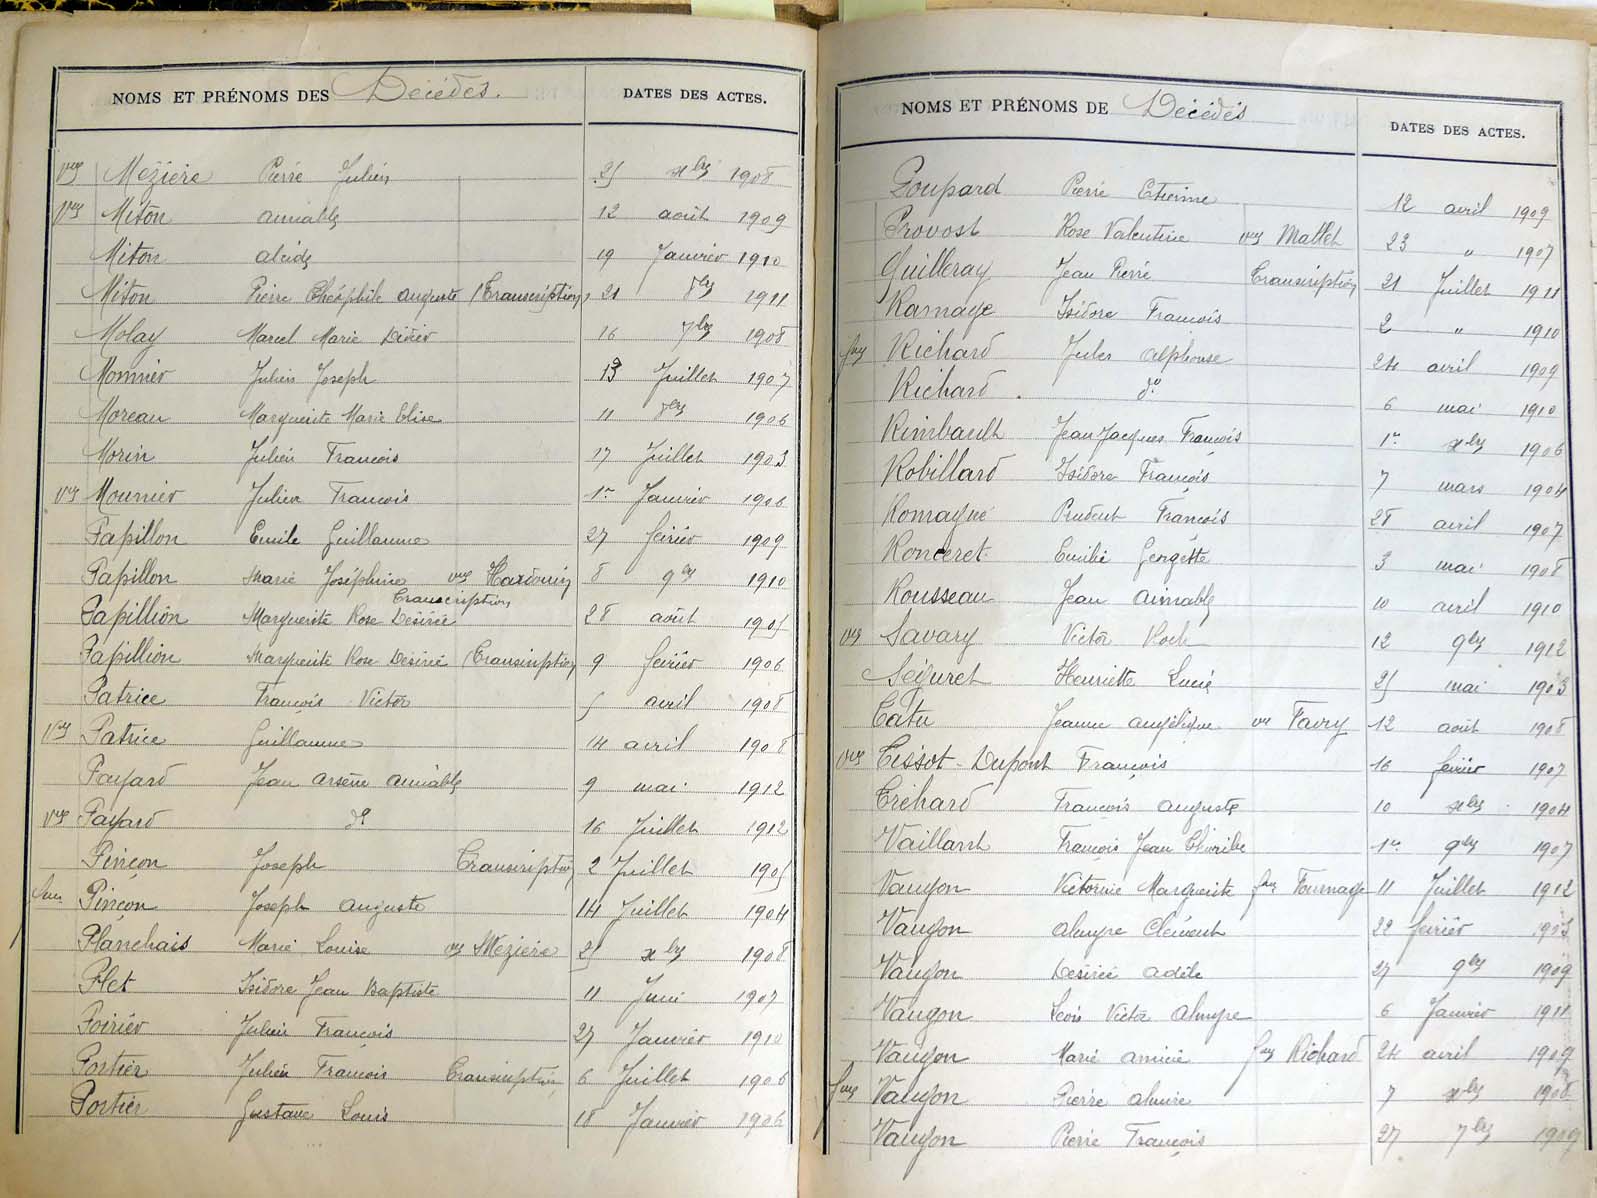 NOMS ET PRÉNOMS DES Décédés. DATES DES ACTES.
Vve Mézière Pierre Julien 25 xbre 1908
Vve Miton aimable 12 août 1909
Miton alcide 19 Janvier 1910
Miton Pierre Théophile Auguste (Transcription) 21 8bre 1911
Molay Marcel Marie Didier 16 7bre 1908
Monnier Julien Joseph 13 Juillet 1907
Moreau Marguerite Marie Elise 11 8bre 1906
Morin Julien François 17 Juillet 1903
Vve Mounier Julien François 1er Janvier 1906
Papillon Emile Guillaume 27 février 1909
Papillon Marie Joséphine vve Hardouin 8 9bre 1910
Transcription
Papillion Marguerite Rose Désirée 28 août 1905
Papillion Marguerite Rose Désirée (Transcription) 9 février 1906
Patrice François Victor 5 avril 1908
Vve Patrice Guillaume 14 avril 1908
Payard Jean arsène aimable 9 mai 1912
Vve Payard do 16 Juillet 1912
Pinçon Joseph Transcription 2 Juillet 1905
fme Pinçon Joseph Auguste 14 Juillet 1904
Planchais Marie Louise vve Mézière 25 xbre 1908
Plet Isidore Jean Baptiste 11 Juin 1907
Poirier Julien François 27 Janvier 1910
Portier Julien François Transcription 6 Juillet 1906
Portier Gustave Louis 18 Janvier 1906
NOMS ET PRÉNOMS DE Décédés DATES DES ACTES.
Poupard Pierre Etienne 12 avril 1909
Provost Rose Valentine vve Mallet 23 " 1907
Guilleray Jean Pierre Transcription 21 Juillet 1911
Ramage Isidore François 2 " 1910
fme Richard Jules alphonse 24 avril 1909
Richard do 6 mai 1910
Rimbault Jean Jacques François 1er xbre 1906
Robillard Isidore François 7 mars 1904
Romagné Prudent François 28 avril 1907
Ronceret Emilie Georgette 3 mai 1908
Rousseau Jean aimable 10 avril 1910
Vve Savary Victor Roch 12 9bre 1912
Séguret Henriette Lucie 25 mai 1903
Tatu Jeanne angélique vve Favry 12 août 1908
Vve Tissot-Dupont François 16 février 1907
Tréhard François auguste 10 xbre 1904
Vaillant François Jean 1er 9bre 1907
Vaugon Victorine Marguerite fme Fournage 11 Juillet 1912
Vaugon almyre Clément 22 février 1903
Vaugon Désirée adèle 27 9bre 1909
Vaugon Léon Victor almyre 6 Janvier 1911
Vaugon Marie fme Richard 24 avril 1909
fme Vaugon Pierre almire 7 xbre 1908
Vaugon Pierre François 27 7bre 1909